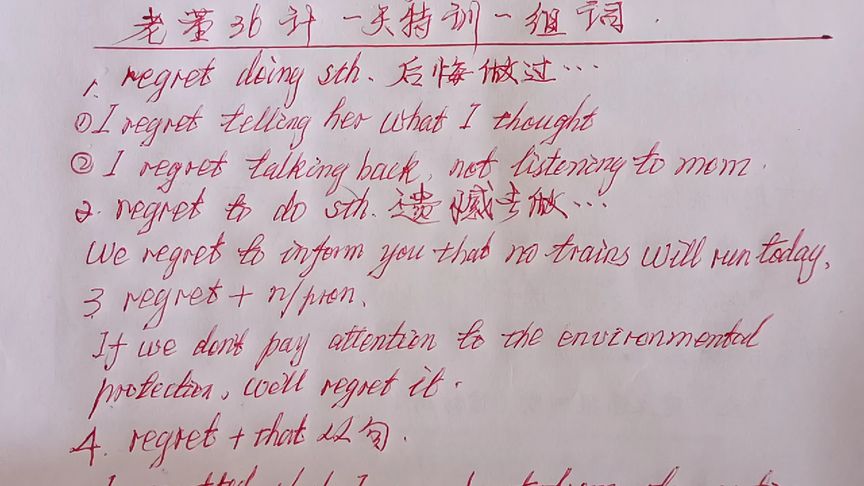 老董36计一天特训一组词.
1. regret doing sth. 后悔做过…
① I regret telling her what I thought
② I regret talking back, not listening to mom.
2. regret to do sth. 遗憾去做…
We regret to inform you that no trains will run today,
3. regret + n/pron.
If we don't pay attention to the environmental
protection, we'll regret it.
4. regret + that 从句.